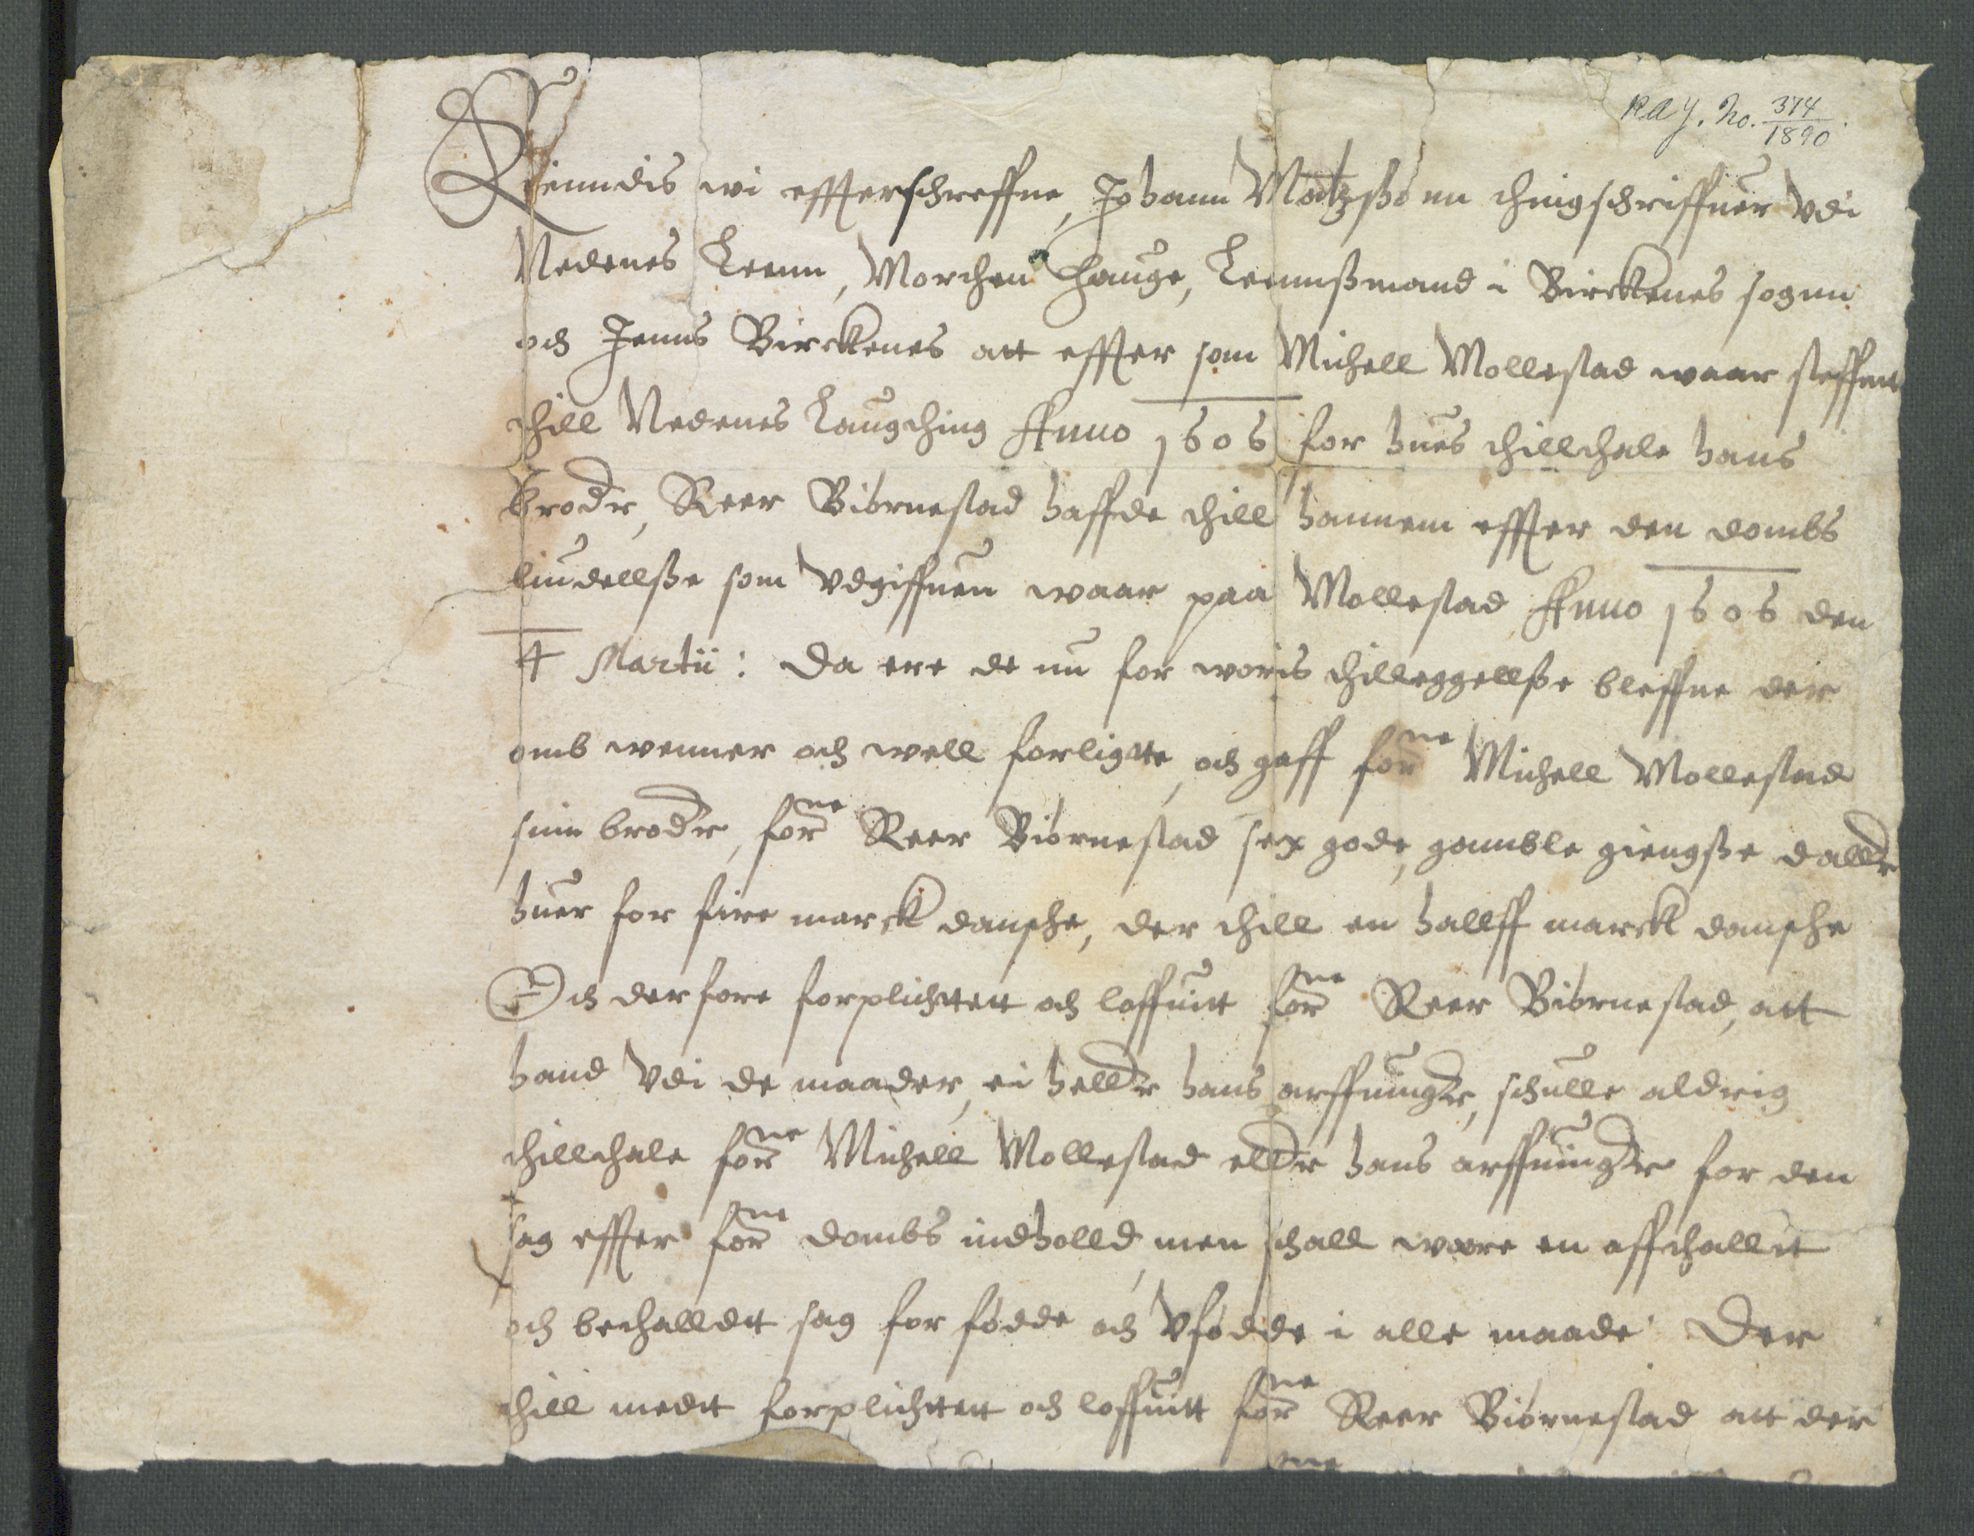 RA J. No. 374/1890.
Kienndis wi effterschreffne, Johann Matzsønn thingschriffuer Vdi
Nedenes Leenn, Morthen Hauge, Lennßmand i Birckenes sognn
och Jenns Birckenes att effter som Michell Mollestad waar steffnett
thill Nedenes Laugthing Anno 1606 for hues thillthale hans
broder, Reer Biørnestad haffde thill hannem effter den dombs
liudellsße som Vdgiffuen waar paa Mollestad Anno 1606 den
4 Martii: Da ere de nu for woris thilleggellsße bleffne der
omb wenner och well forligtte, och gaff forne Michell Mollestad
sinn broder, forne Reer Biørnestad sex gode, gamble giengsße daller
huer for fire marck dansche, der thill en hallff marck dansche
Och derfore forplichtett och loffuitt forne Reer Biørnestad, att
hand Vdi de maader, ei heller hans arffuinger, schulle aldrig
thillthale forne Michell Mollestad eller hans arffuinger for den
sag effter forne dombs indholld, men schall were en affthallit
och bethalldt sag for fødde och Vfødde i alle maade. Der
thill medt forplichtett och loffuitt forne Reer Biørnestad att der